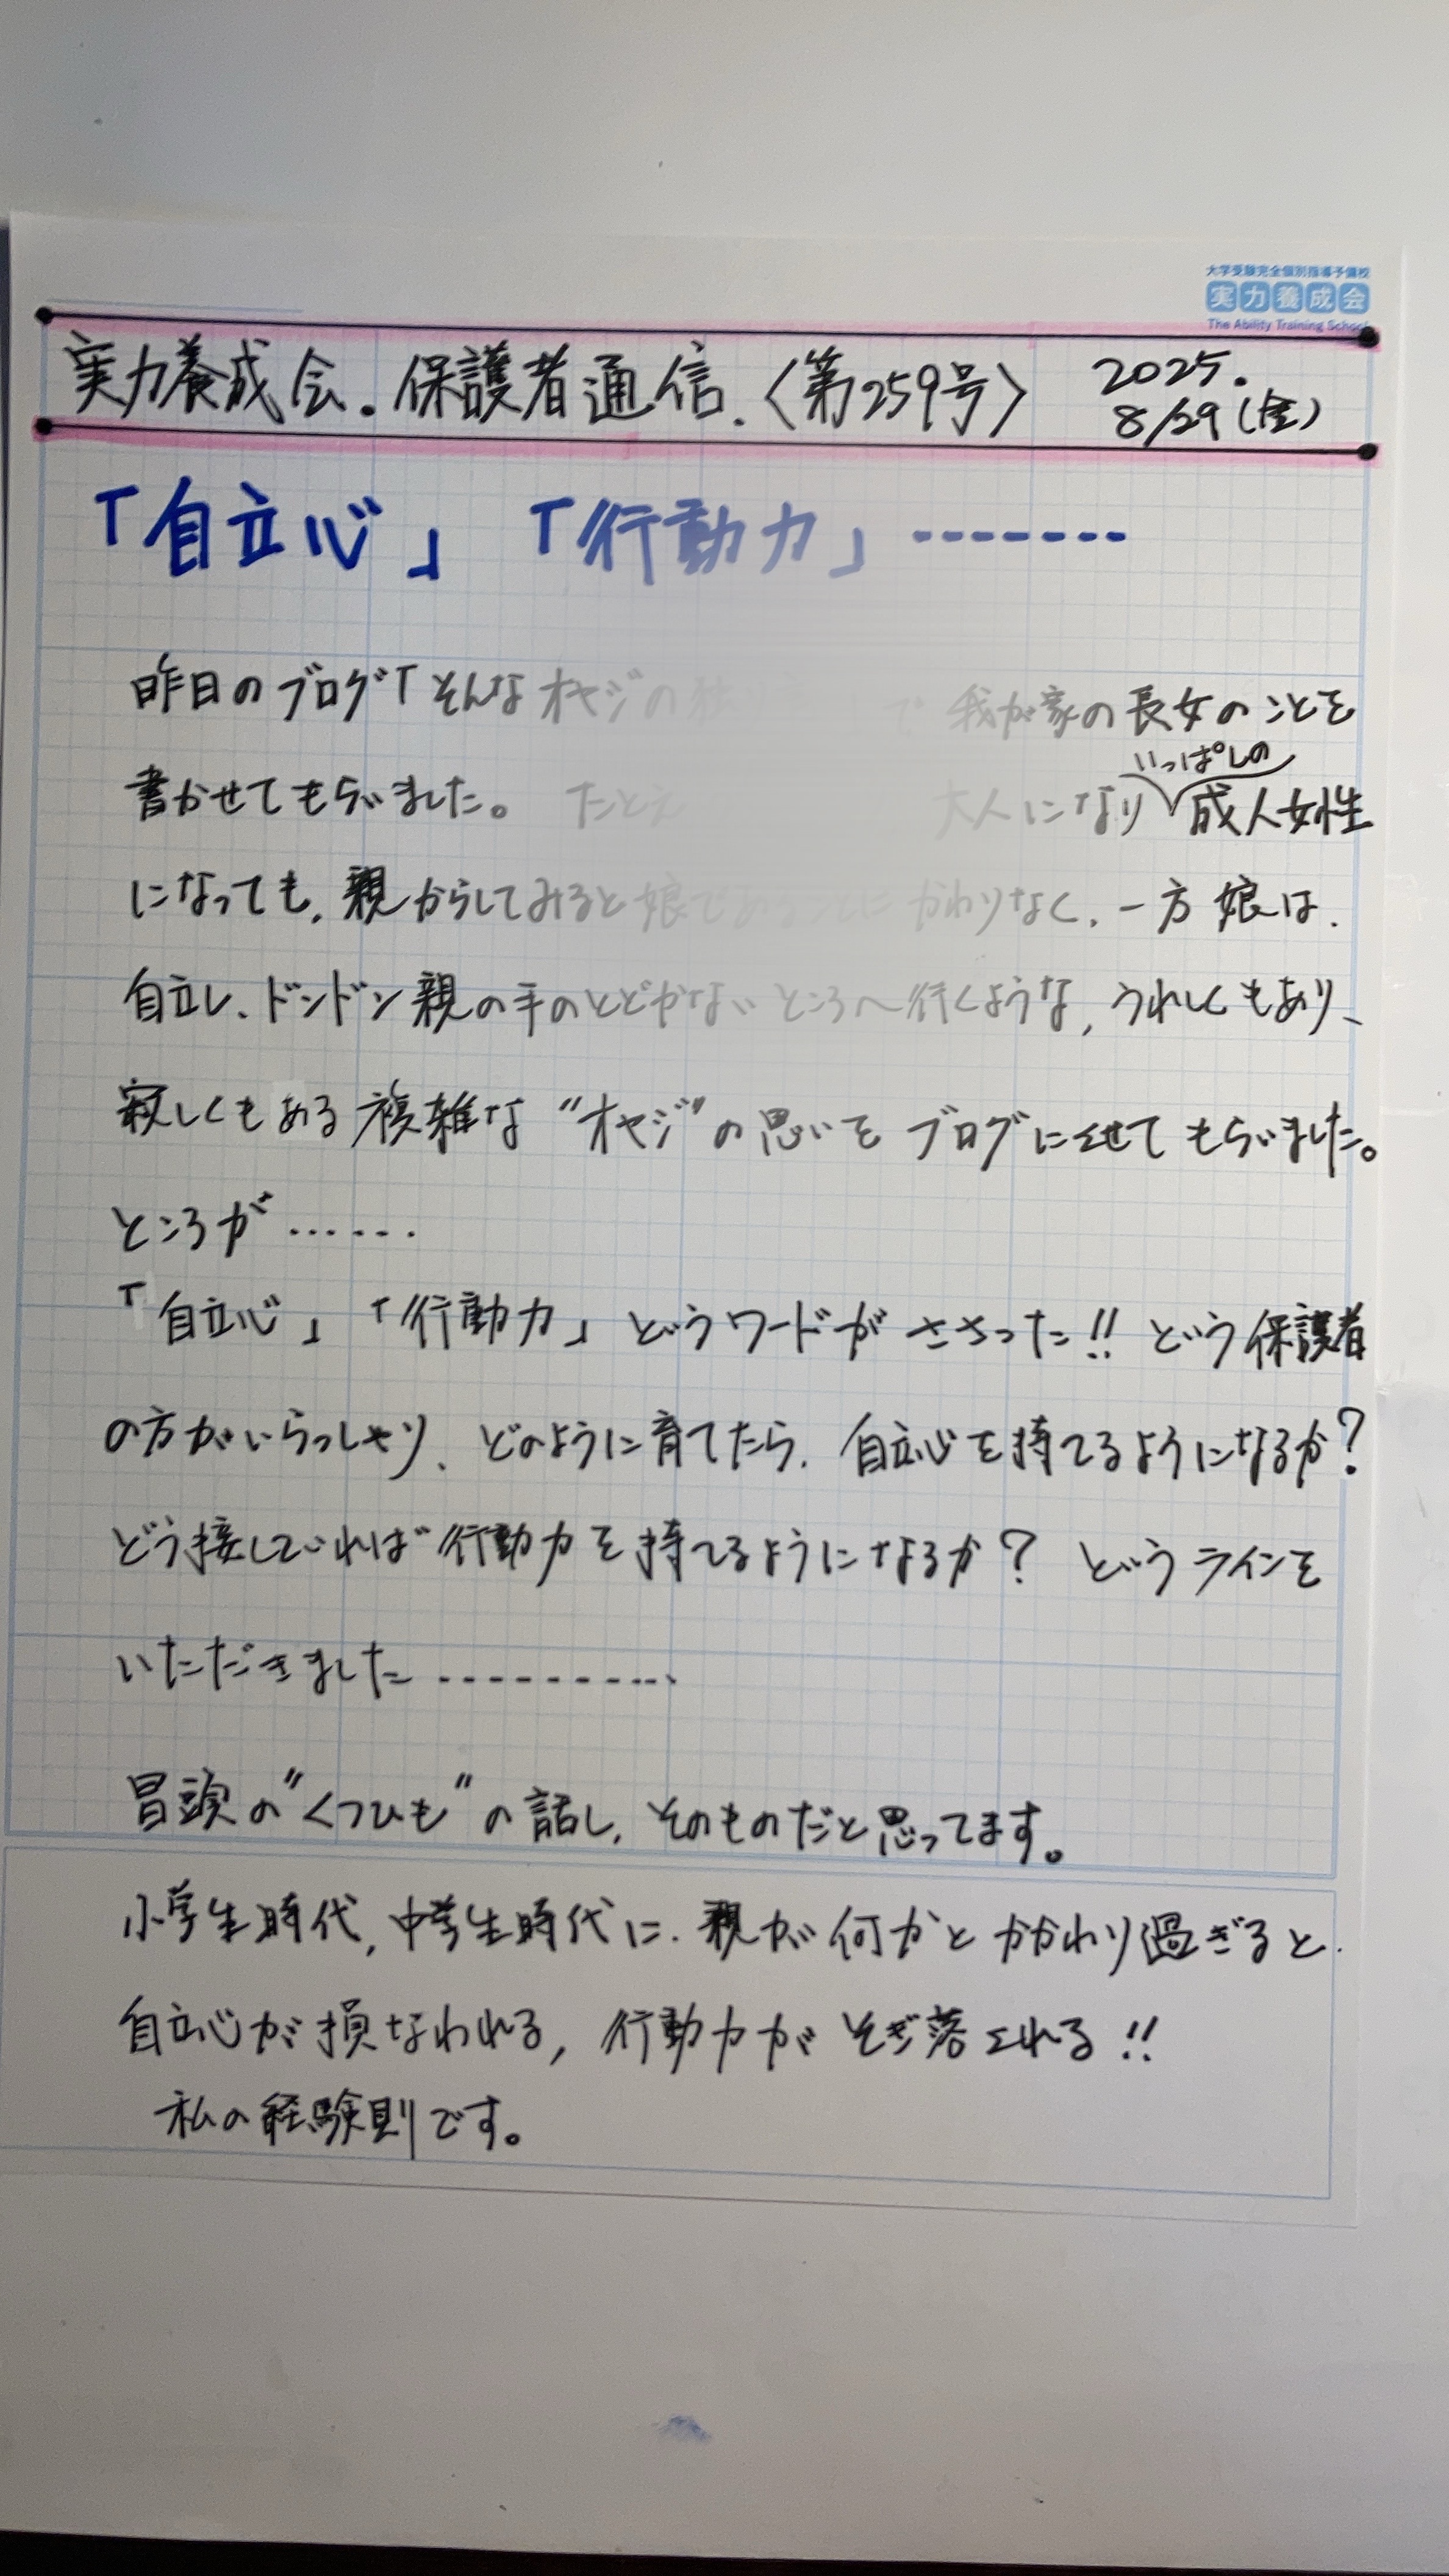 大学受験完全個別指導予備校
実力養成会
The Ability Training School
実力養成会.保護者通信.〈第259号〉
2025.
8/29(金)
「自立心」「行動力」-------
昨日のブログ「そんなオヤジの 我が家の長女のことを
書かせてもらいました。たとえ 大人になり いっぱしの 成人女性
になっても、親からしてみると娘で かわりなく、一方娘は、
自立し、ドンドン親の手のとどかないところへ行くような、うれしくもあり、
寂しくもある複雑な"オヤジ"の思いをブログにさせてもらいました。
ところが……
「自立心」「行動力」というワードがささった!!という保護者
の方がいらっしゃり、どのように育てたら、自立心を持てるようになるか?
どう接していれば行動力を持てるようになるか?というラインを
いただきました----------
冒頭の"くつひも"の話し、そのものだと思ってます。
小学生時代,中学生時代に、親が何かとかかわり過ぎると、
自立心が損なわれる,行動力がそぎ落とされる!!
私の経験則です。